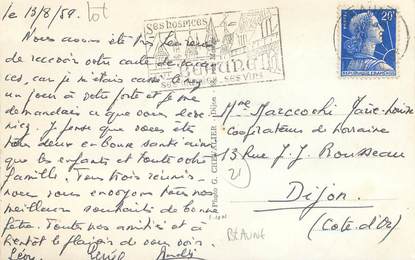 le 13/8/59.
lot
Nous avons été très heureux
de recevoir votre carte de vacan
ces, car je m'étais cassé le nez
un jour à votre porte et je me
demandais ce que vous deve-
niez. Je pense que vous êtes
tous deux en bonne santé ainsi
que les enfants et toute votre
famille. Tous trois réunis
nous vous envoyons tous nos
meilleurs souhaits de bonne
fête. Toutes nos amitiés et à
bientôt le plaisir de vous voir.
Léon,
André
SES HOSPICES
BEAUNE
SES VINS
Photo G. CHEVALIER - Dijon
20F
REPUBLIQUE FRANÇAISE
Mme Marcocchi
Coopérateurs de Lorraine
13 Rue J. J. Rousseau
21
Dijon
(Côte-d'Or)
BEAUNE